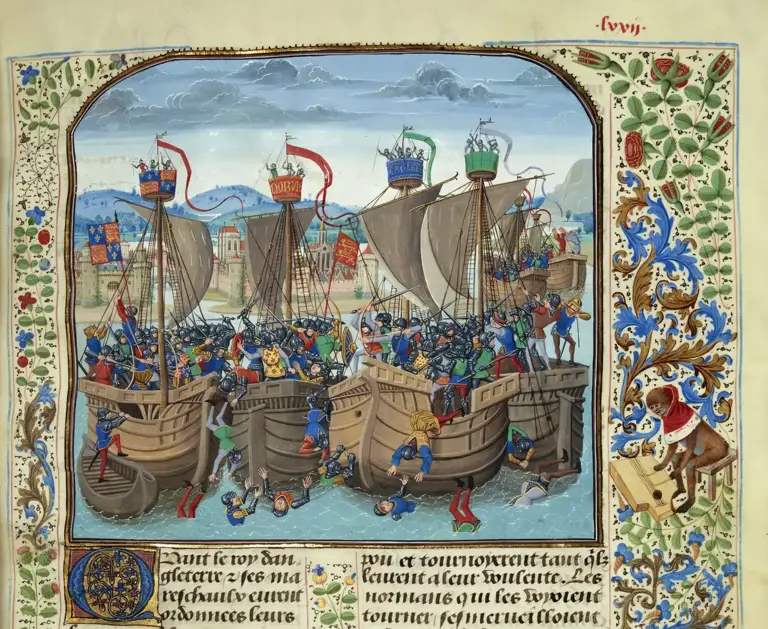 ·lxxij·
Quant le roy dan
gleterre ⁊ ses ma
reschaulx eurent
ordonnees leurs
pou et tournoyerent tant qͥlz
leurent a leur voulente. Les
normans qui les voyoient
tourner sesmerueilloient